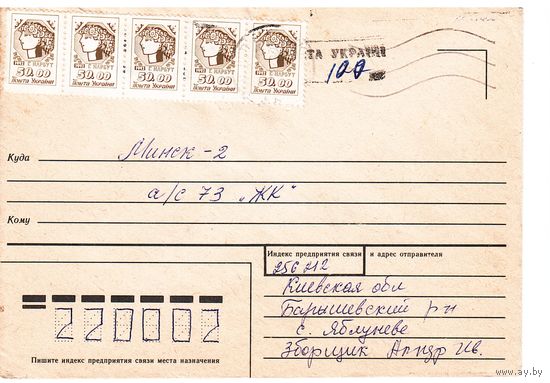 1992 Г. НАРБУТ 1992 Г. НАРБУТ 1992 Г. НАРБУТ 1992 Г. НАРБУТ 1992 Г. НАРБУТ
50.00 50.00 50.00 50.00 50.00
пошта України пошта України пошта України пошта України пошта України
ТА УКРАЇНИ
100
Куда Минск-2
а/с 73 „ЖК"
Кому
Индекс предприятия связи и адрес отправителя
256212
Киевская обл
Барышевский р-н
с. Яблуневе
Зборщик
220002
Пишите индекс предприятия связи места назначения
www.ay.by